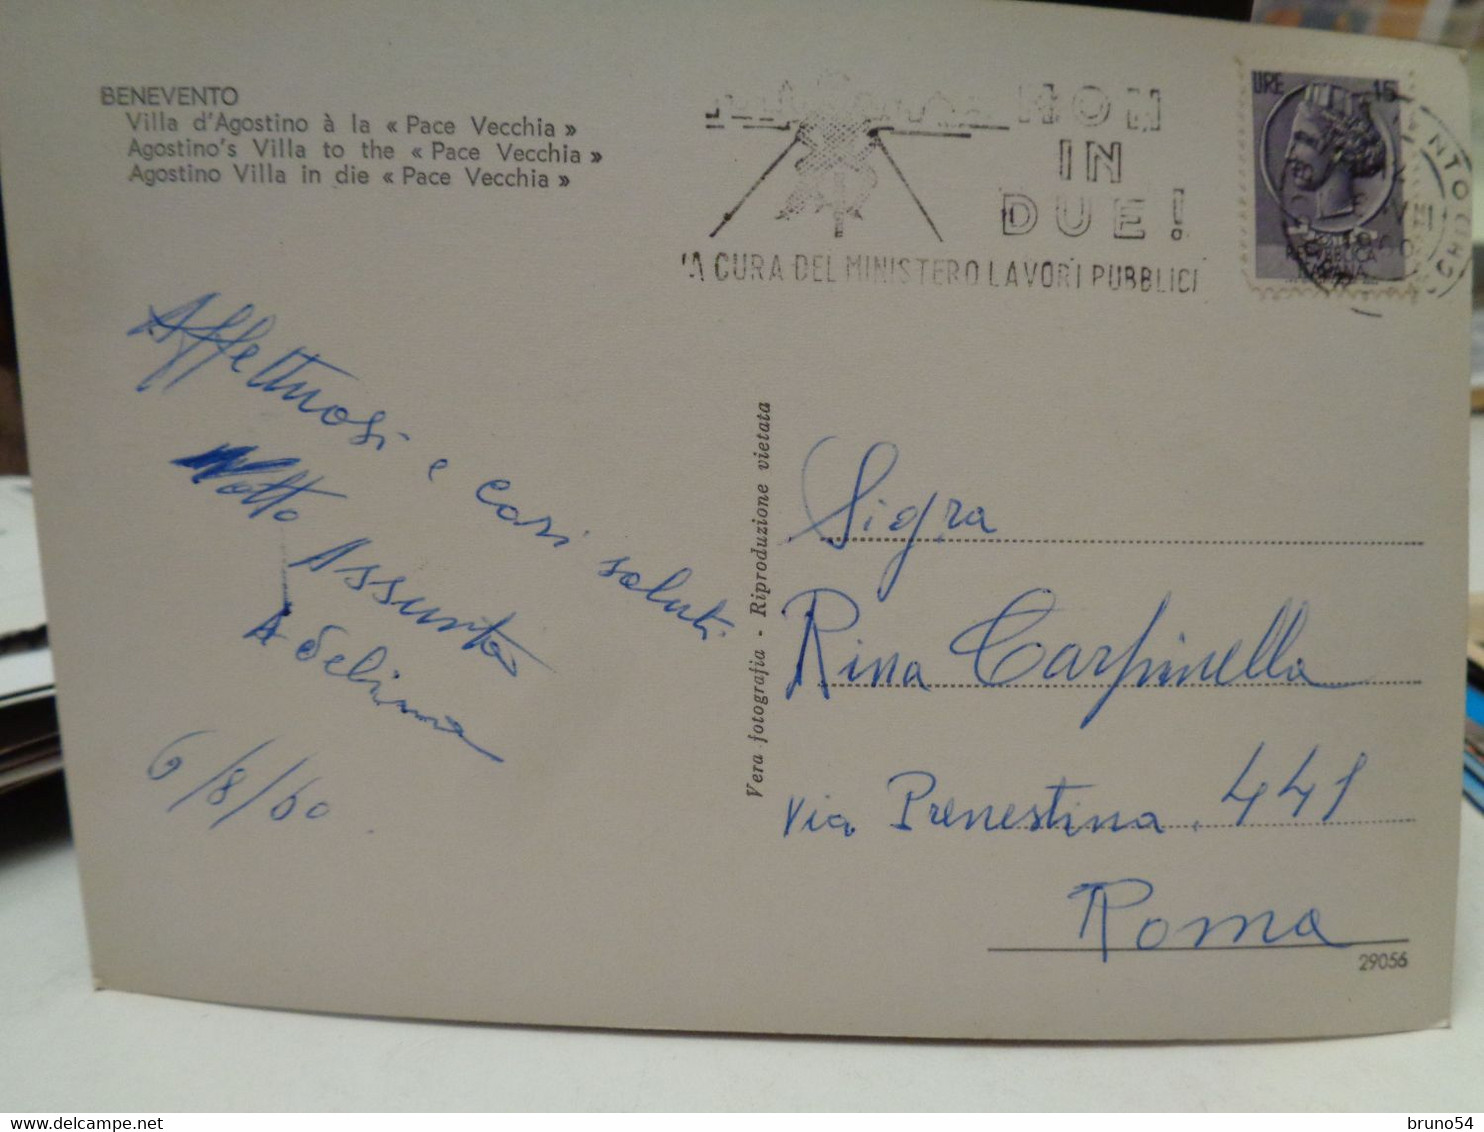 BENEVENTO
Villa d'Agostino à la « Pace Vecchia »
Agostino's Villa to the « Pace Vecchia »
Agostino Villa in die « Pace Vecchia »
NON
IN
DUE!
A CURA DEL MINISTERO LAVORI PUBBLICI
LIRE 15
REPUBBLICA
ITALIANA
Affettuosi e cari saluti
Assunta
Adelina
6/8/60
Vera fotografia - Riproduzione vietata
Sigra
Rina Carpinella
Via Prenestina 441
Roma
29056
bruno54